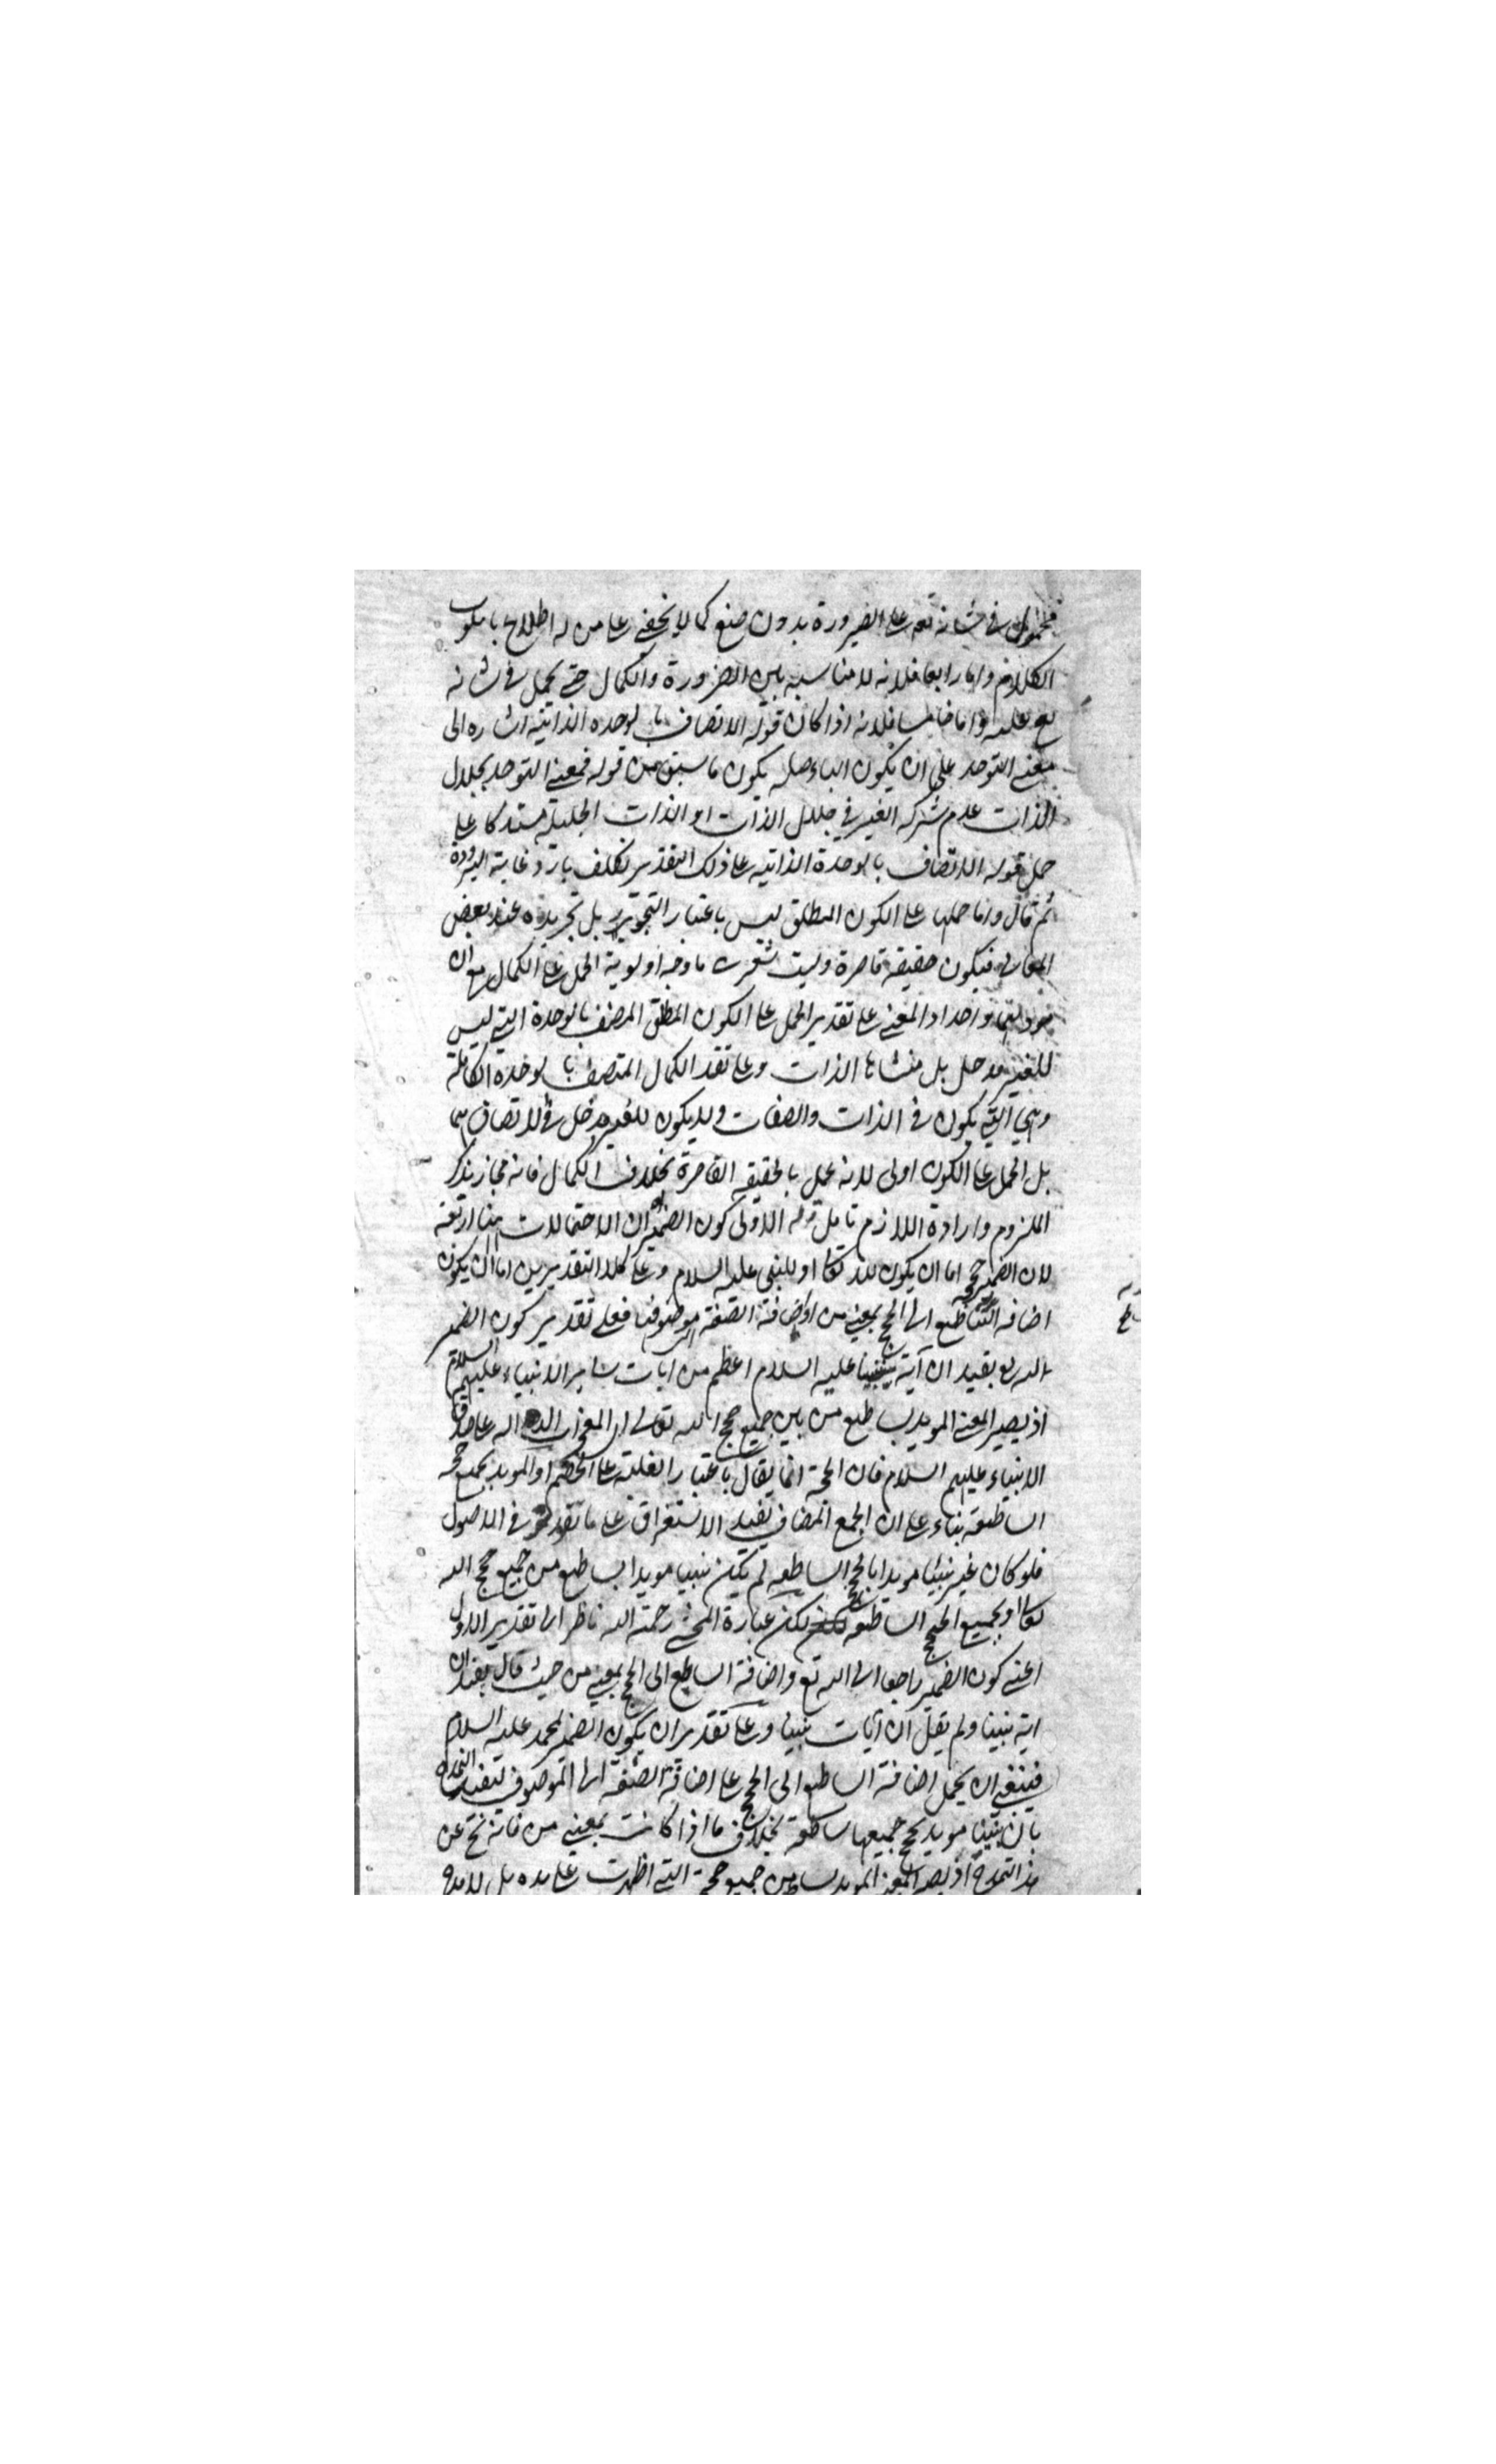 فمحمول في شانه تعه على الضرورة بدون صنع كما لا يخفى على من له اطلاع باسلوب
الكلام واما رابعا فلانه لا مناسبة بين الضرورة والكمال حتى يحمل في شانه
تع عليه واما خامسا فلانه اذا كان قوله الاتصاف بالوحدة الذاتية اشاره الى
معنى التوحد على ان يكون الباء صله يكون ما سبق من قوله فمعنى التوحد بجلال
الذات عدم شركه الغير في جلال الذات او الذات الجليلة مستدركا على
حمل قوله الاتصاف بالوحدة الذاتيه على ذلك التقدير تكلف بارد غاية البرودة
ثم قال واما حملها على الكون المطلق ليس باعتبار التجوز بل تجريده عند بعض
المعاني فيكون حقيقة قاصرة وليت شعرى ما وجه اولوية الحمل على الكمال مع ان
واحدا والمعنى على تقدير الحمل على الكون المطلق المتصف بالوحدة التي ليس
للغير مدخل بل منشاها الذات وعلى تقد الكمال المتصف بالوحدة الكاملة
وهي التي يكون في الذات والصفات ولا يكون للغير مدخل في الاتصاف بها
بل الحمل على الكون اولى لانه عمل بالحقيقه القاصرة بخلاف الكمال فانه مجاز بذكر
الملزوم وارادة اللازم تامل قوله الاولى كون الضمير ان الاحتمالات هنا اربعة
لان الضمير حججه اما ان يكون لله تعالى او للنبي عليه السلام وعلى كلا التقديرين اما ان يكون
اضافه الساطع الى الحجج بمعنى من او اضافة الصفة الى موصوفها فعلى تقدير كون الضمير
لله تع يفيد ان آية نبينا عليه السلام اعظم من ايات سائر الانبياء عليهم السلام
اذ يصير المعنى المويد بساطع من بين جميع حجج الله تعالى اى المعجزات الداله على صدق
الانبياء عليهم السلام فان الحجة انما يقال باعتبار الغلبة على الخصم او المويد بجميع حججه
الساطعة بناء على ان الجمع المضاف يفيد الاستغراق على ما تقرر في الاصول
فلو كان غير نبينا مويدا بالحجج الساطعه لم يكن نبينا مويدا بساطع من جميع حجج الله
تعالى او بجميع الحجج الساطعه لكن عبارة المحشى رحمة الله ناظر الى تقدير الاول
اعنى كون الضمير راجعا الى الله تع واضافة الساطع الى الحجج بمعنى من حيث قال يفيد ان
اية نبينا ولم يقل ان آيات نبينا وعلى تقدير ان يكون الضمير لمحمد عليه السلام
فينبغى ان يحمل اضافة الساطع الى الحجج على اضافة الصفة الى الموصوف ليفيد التمدح
بان نبينا مويد بحجج جميعها ساطعة بخلاف ما اذا كانت بمعنى من فانه نتج عن
هذا التمدح اذ يصير المعنى المويد بساطع من جميع حججه التي اظهرت على يده بل لا يدع